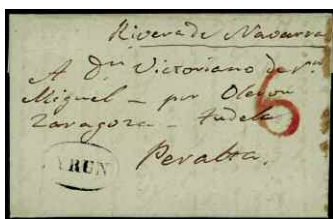 Rivera de Navarra
A Dn Victoriano de Sn
Miguel - por Oleron
Zaragoza - Tudela
6
Peralta.
YRUN